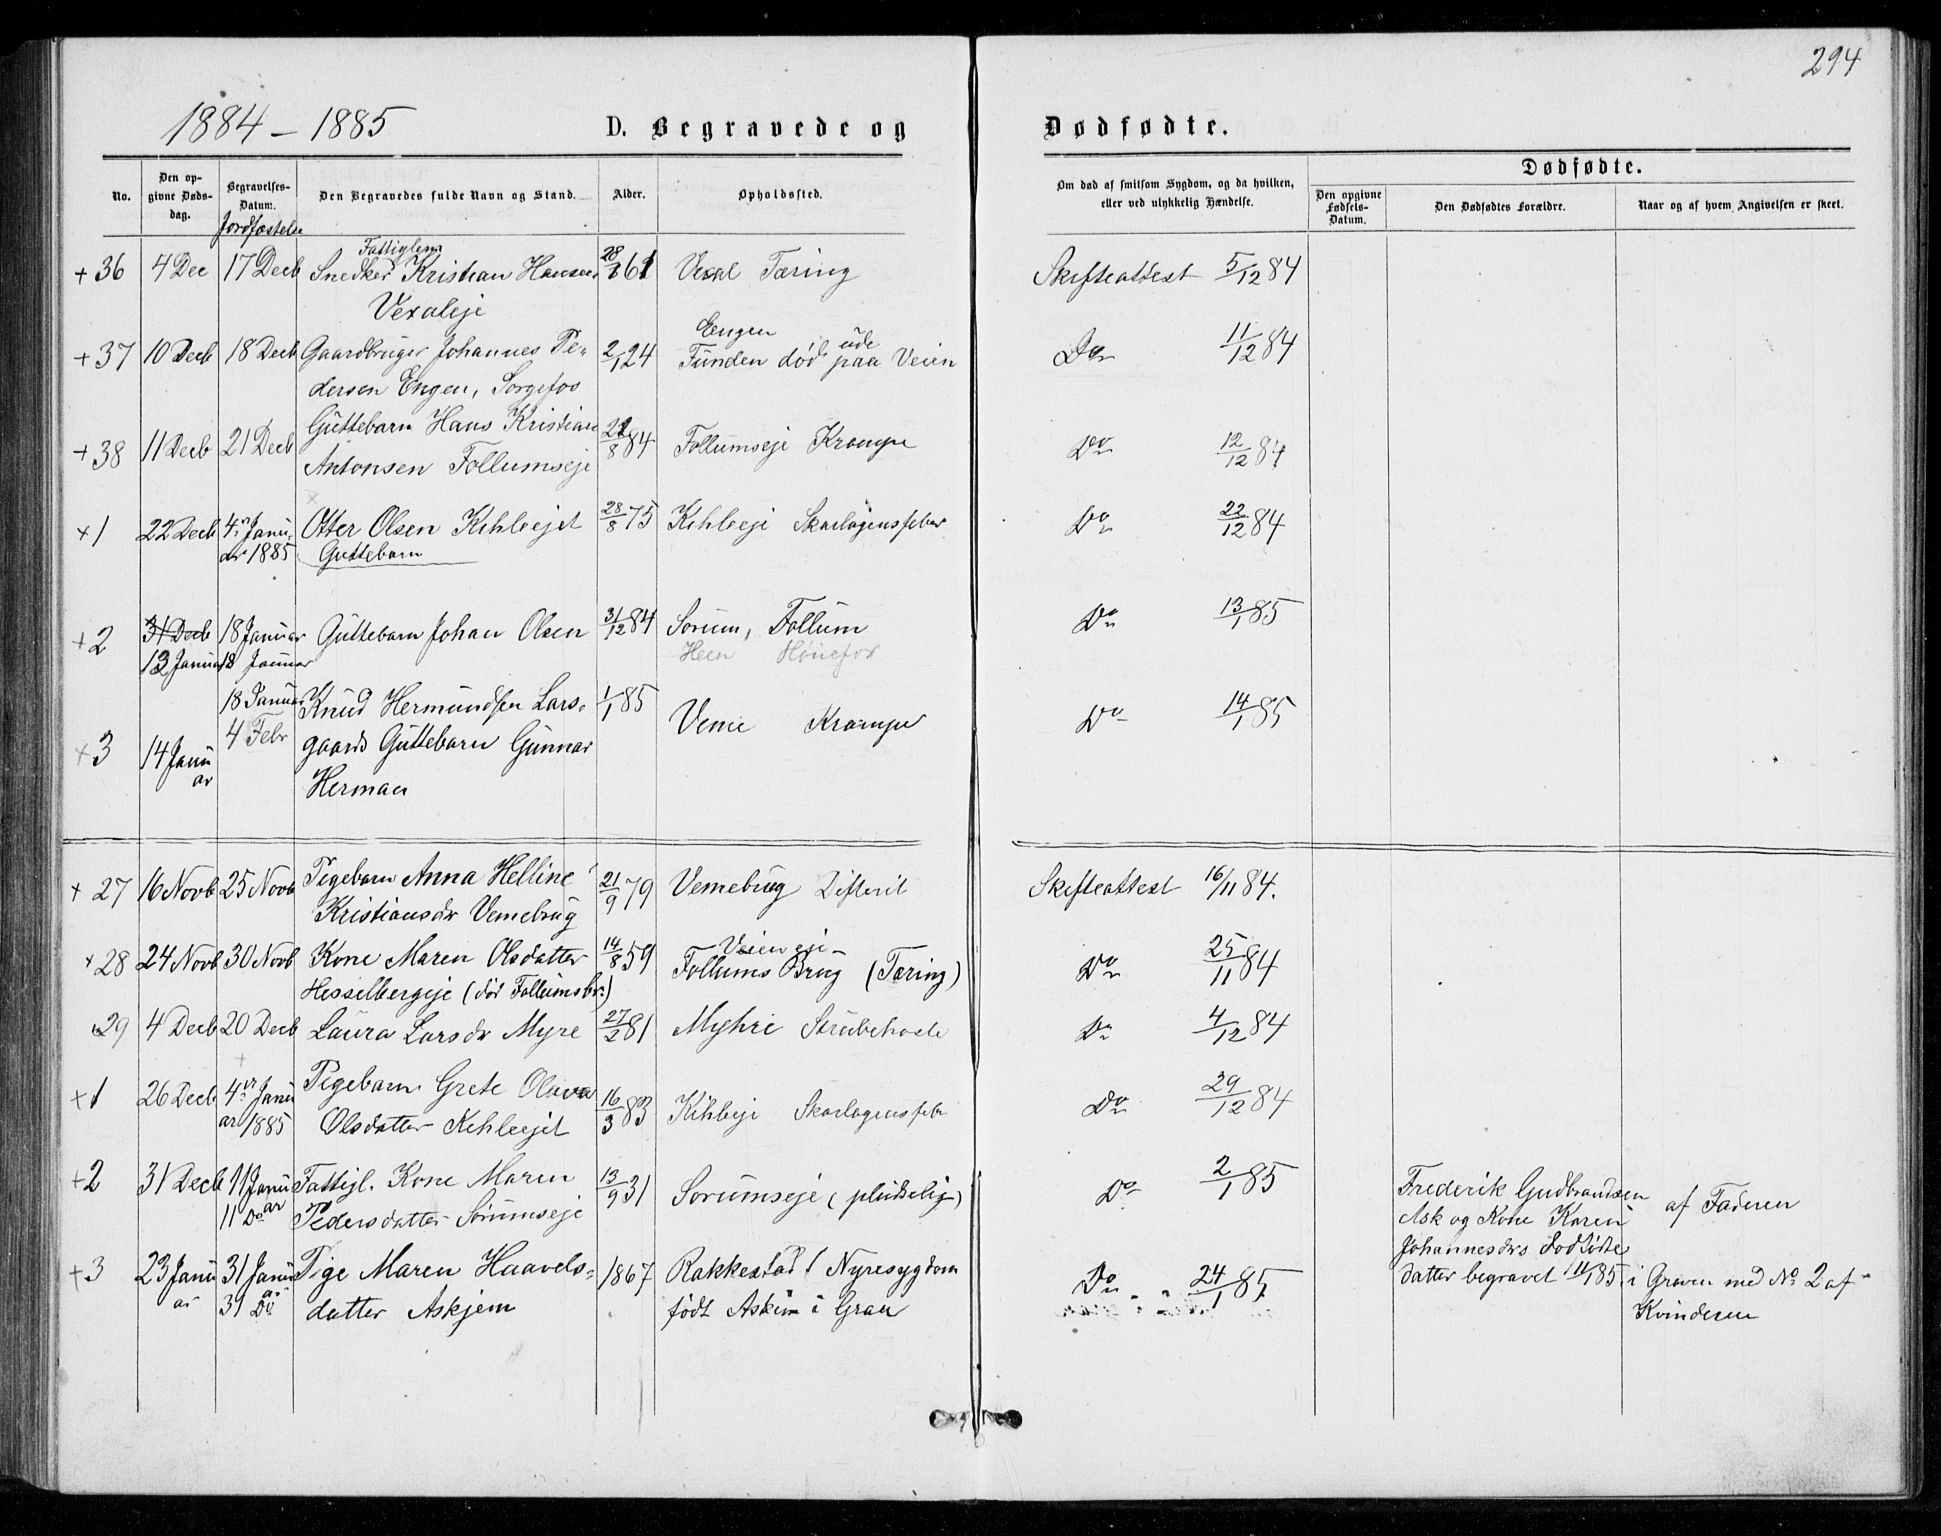 294
1884 – 1885 D. Begravede og Dødfødte.
No. Den opgivne Dødsdag. Begravelses-Datum. Den Begravedes fulde Navn og Stand. Alder. Opholdssted. Om død af smitsom Sygdom, og da hvilken, eller ved ulykkelig Hændelse. Dødfødte. Den opgivne Fødsels-Datum. Den Dødfødtes Forældre. Naar og af hvem Angivelsen er skeet.
Jordfæstelse
Fattiglem
+ 36 4 Dec 17 Decb Snedker Kristian Hansen 61 Vexal Tæring Skifteattest 5/12 84
Vexaleje
Engen
+ 37 10 Decb 18 Decb Gaardbruger Johannes Pe- 2/1 24 Funden død ude paa Veien Do 11/12 84
dersen Engen, Sorgefos
+ 38 11 Decb 21 Decb Guttebarn Hans Kristian 8 84 Follumseje Krampe Do 12/12 84
Antonsen Follumseje
+ 1 22 Decb 4 Janu- Otter Olsen Kihleejet 28/8 75 Kihleeje Skarlagensfeber Do 22/12 84
ar 1885 Guttebarn
+ 2 31 Decb 18 Januar Guttebarn Johan Olsen 31/12 84 Sorum, Follum Do 13/1 85
13 Januar 18 Januar Heen Hønefos
18 Januar Knud Hermundsen Lars- 1/1 85
+ 3 14 Janu 4 Febr gaards Guttebarn Gunnar Veme Krampe Do 14/1 85
ar Herman
+ 27 16 Novb 25 Novb Pigebarn Anna Helline 21/9 79 Vemebrug Difterit Skifteattest 16/11 84.
Kristiansdr Vemebrug
Veieneje
+ 28 24 Novb 30 Novb Kone Maren Olsdatter 14/8 59 Follums Brug (Tæring) Do 25/11 84
Hesselbergeje (død Follumsbr.)
29 4 Decb 20 Decb Laura Larsdr Myre 27/2 81 Myhre Strubehoste Do 4/12 84
+ 1 26 Decb 4 Janu Pigebarn Grete Olava 16/3 83 Kihleeje Skarlagensfebr Do 29/12 84
ar 1885 Olsdatter Kehleejet
+ 2 31 Decb 11 Janu Fattigl. Kone Maren 13/9 31 Sorumseje (pludselig) Do 2/1 85
ar
11 Do Pedersdatter Sørumseje
+ 3 23 Janu 31 Janu Pige Maren Haavels- 1867 Rakkestad Nyresygdom Do 24/1 85
ar ar
31 Do datter Askjem født Askim i Gran
Frederik Gudbrandsen
Ask og Kone Karen af Faderen
Johannesdrs dødfødte
datter begravet 11/1 85 i Graven med No 2 af
Kvinderne